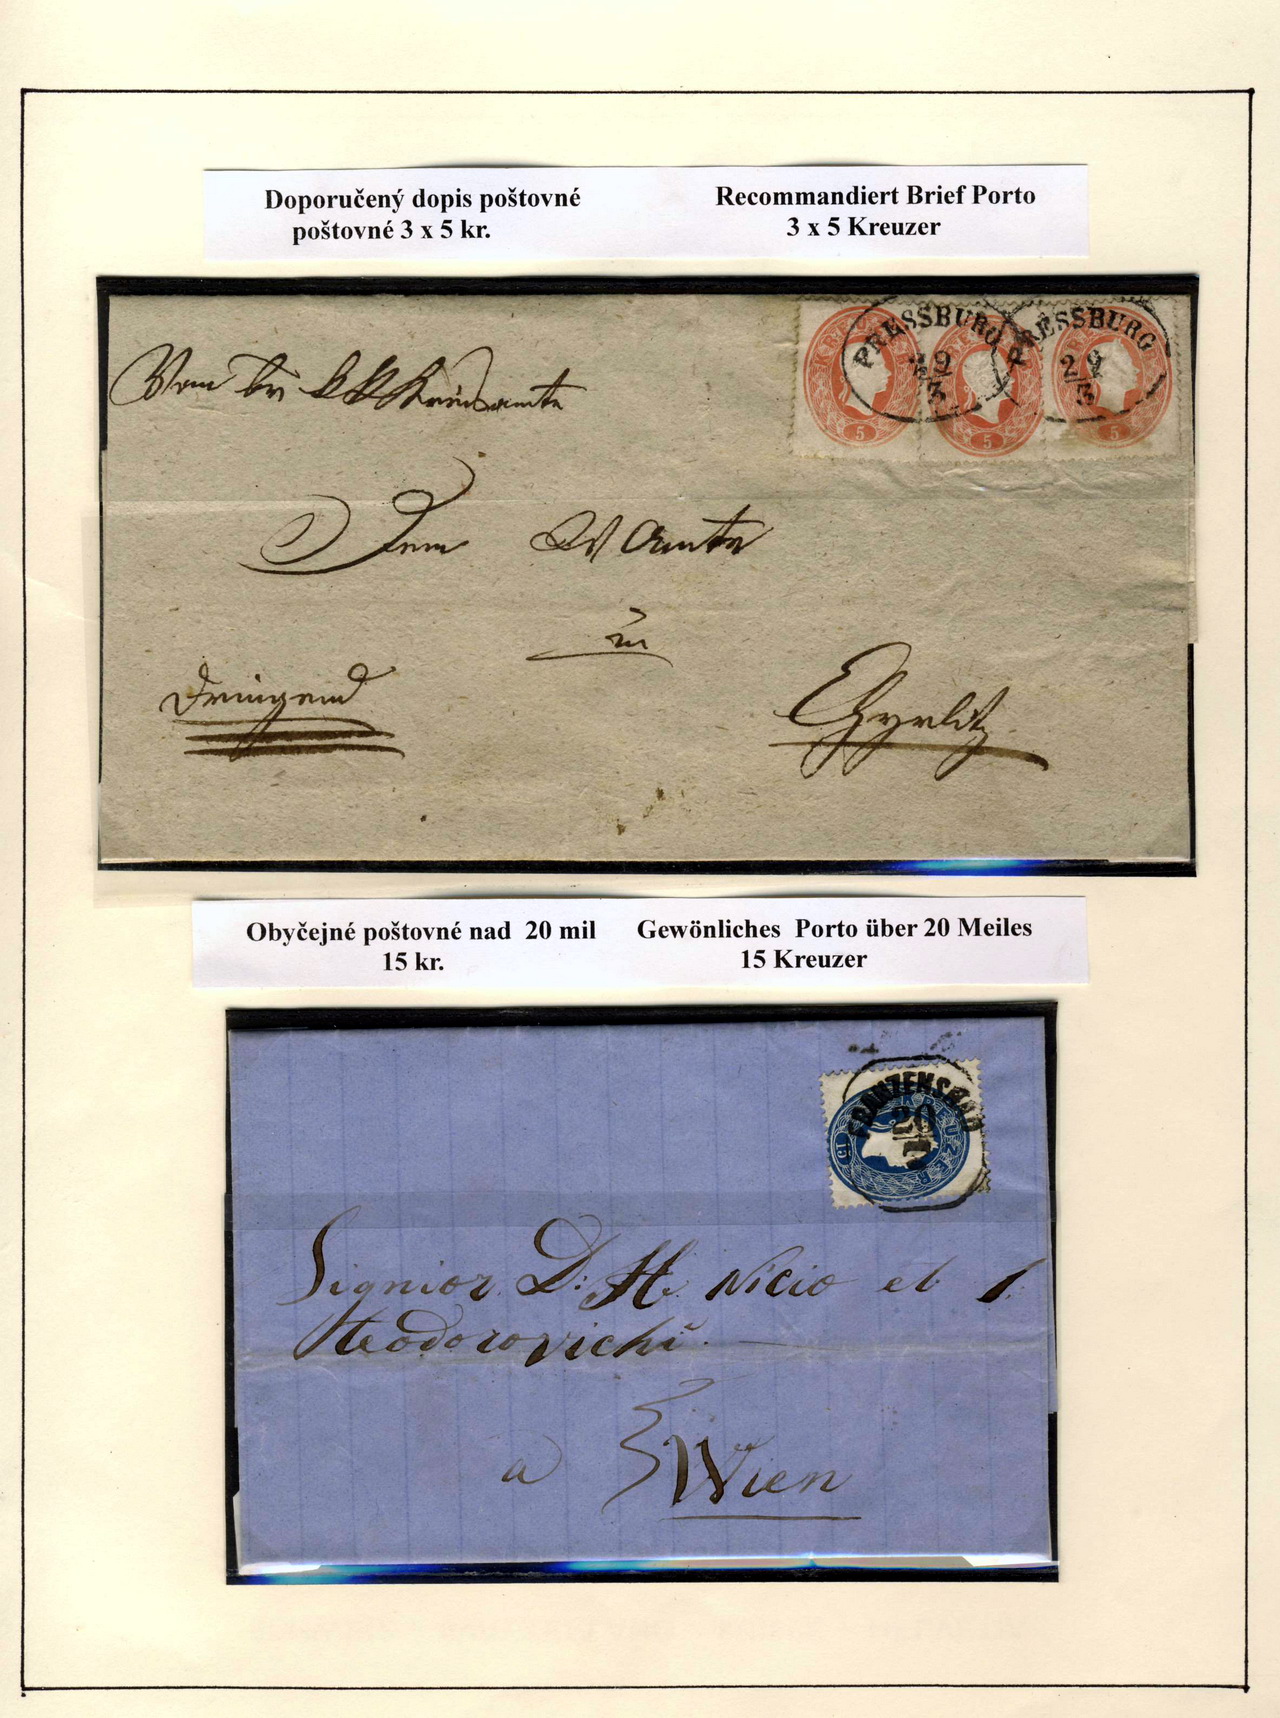 Doporučený dopis poštovné
poštovné 3 x 5 kr.
Recommandiert Brief Porto
3 x 5 Kreuzer
PRESSBURG
29
3
PRESSBURG
29
3
5
5
5
Dem Amte
in
Dringend
Obyčejné poštovné nad 20 mil
15 kr.
Gewönliches Porto über 20 Meiles
15 Kreuzer
FRANZENSBAD
20
KREUZER
15
Signior D: H. Nicio et
Teodorovichi
a
Wien